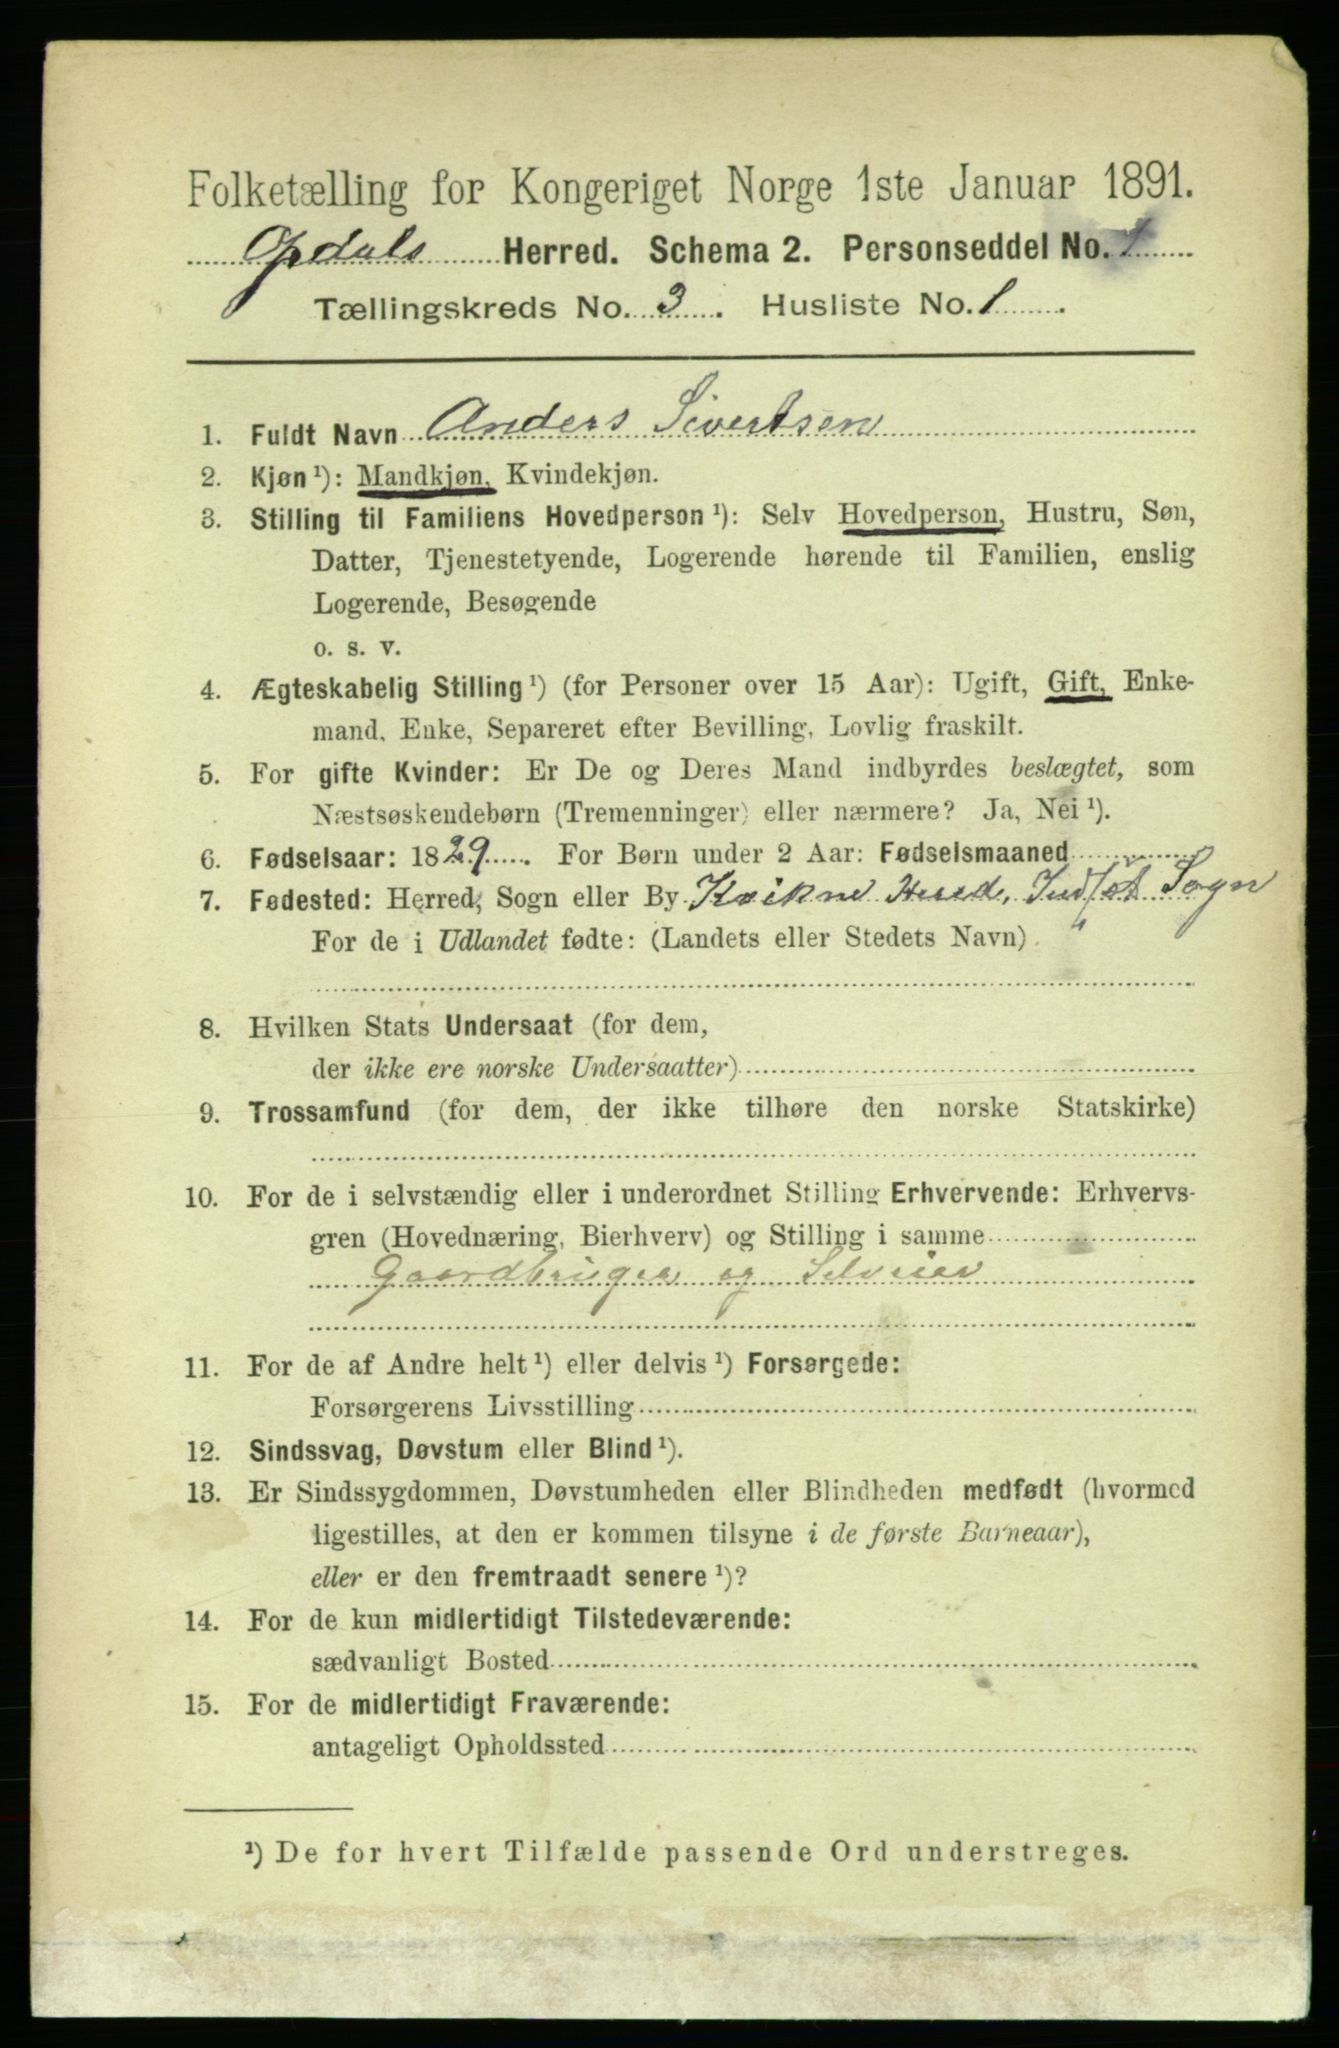 Folketælling for Kongeriget Norge 1ste Januar 1891.
Opdals Herred. Schema 2. Personseddel No. 1
Tællingskreds No. 3. Husliste No. 1.
1. Fuldt Navn Anders Sivertsen
2. Kjøn ¹): Mandkjøn, Kvindekjøn.
3. Stilling til Familiens Hovedperson ¹): Selv Hovedperson, Hustru, Søn,
Datter, Tjenestetyende, Logerende hørende til Familien, enslig
Logerende, Besøgende
o. s. v.
4. Ægteskabelig Stilling ¹) (for Personer over 15 Aar): Ugift, Gift, Enke-
mand, Enke, Separeret efter Bevilling, Lovlig fraskilt.
5. For gifte Kvinder: Er De og Deres Mand indbyrdes beslægtet, som
Næstsøskendebørn (Tremenninger) eller nærmere? Ja, Nei ¹).
6. Fødselsaar: 1829. For Børn under 2 Aar: Fødselsmaaned
7. Fødested: Herred, Sogn eller By Kvikne Herred, Indset Sogn
For de i Udlandet fødte: (Landets eller Stedets Navn)
8. Hvilken Stats Undersaat (for dem,
der ikke ere norske Undersaatter)
9. Trossamfund (for dem, der ikke tilhøre den norske Statskirke)
10. For de i selvstændig eller i underordnet Stilling Erhvervende: Erhvervs-
gren (Hovednæring, Bierhverv) og Stilling i samme
Gaardbruger og Selveier
11. For de af Andre helt ¹) eller delvis ¹) Forsørgede:
Forsørgerens Livsstilling
12. Sindssvag, Døvstum eller Blind ¹).
13. Er Sindssygdommen, Døvstumheden eller Blindheden medfødt (hvormed
ligestilles, at den er kommen tilsyne i de første Barneaar),
eller er den fremtraadt senere ¹)?
14. For de kun midlertidigt Tilstedeværende:
sædvanligt Bosted
15. For de midlertidigt Fraværende:
antageligt Opholdssted
¹) De for hvert Tilfælde passende Ord understreges.